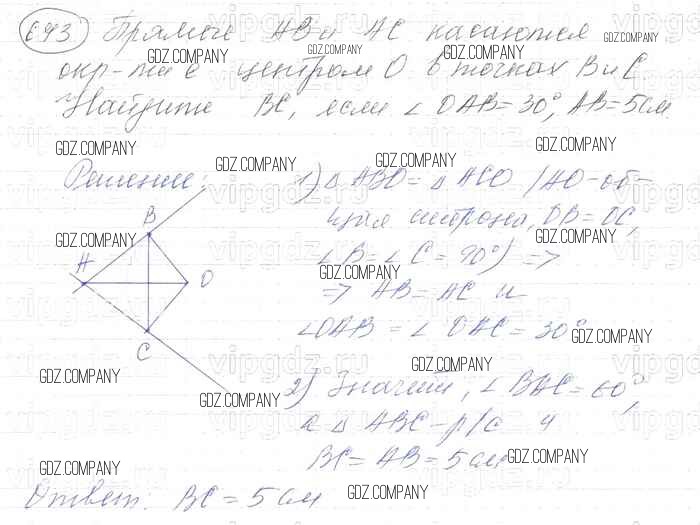 693 Прямые AB и AC касаются
окр-ти с центром O в точках B и C.
Найдите BC, если ∠OAB=30°, AB=5см.
Решение:
1) △ABO=△ACO /AO-об-
щая сторона, OB=OC,
∠B=∠C=90°) =>
=> AB=AC и
∠OAB=∠OAC=30°
2) Значит, ∠BAC=60°,
а △ABC-р/с и
BC=AB=5см
Ответ: BC=5см
B
A
O
C
GDZ.COMPANY
GDZ.COMPANY
GDZ.COMPANY
GDZ.COMPANY
GDZ.COMPANY
GDZ.COMPANY
GDZ.COMPANY
GDZ.COMPANY
GDZ.COMPANY
GDZ.COMPANY
GDZ.COMPANY
GDZ.COMPANY
GDZ.COMPANY
GDZ.COMPANY
GDZ.COMPANY
GDZ.COMPANY
GDZ.COMPANY
vipgdz.ru